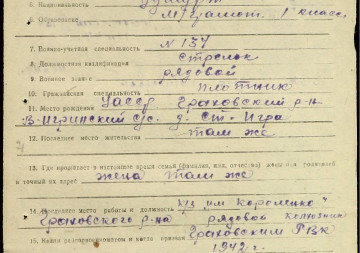 5. Национальность удмурт
6. Образование м/грамот. 1 класс
7. Военно-учетная специальность № 134
8. Должностная квалификация стрелок
9. Воинское звание рядовой
10. Гражданская специальность плотник
11. Место рождения УАССР. Граховский р-н
В-Игринский с/с. д. Ст-Игра
12. Последнее место жительства там же
13. Где проживает в настоящее время семья (фамилия, имя, отчество) жены или родителей
и точный их адрес жена там же
14. место работы и должность к/з им. Короленко
Граховского р-на рядовой колхозник
15. Каким райвоенкоматом и когда призван Граховским РВК
1942 г.